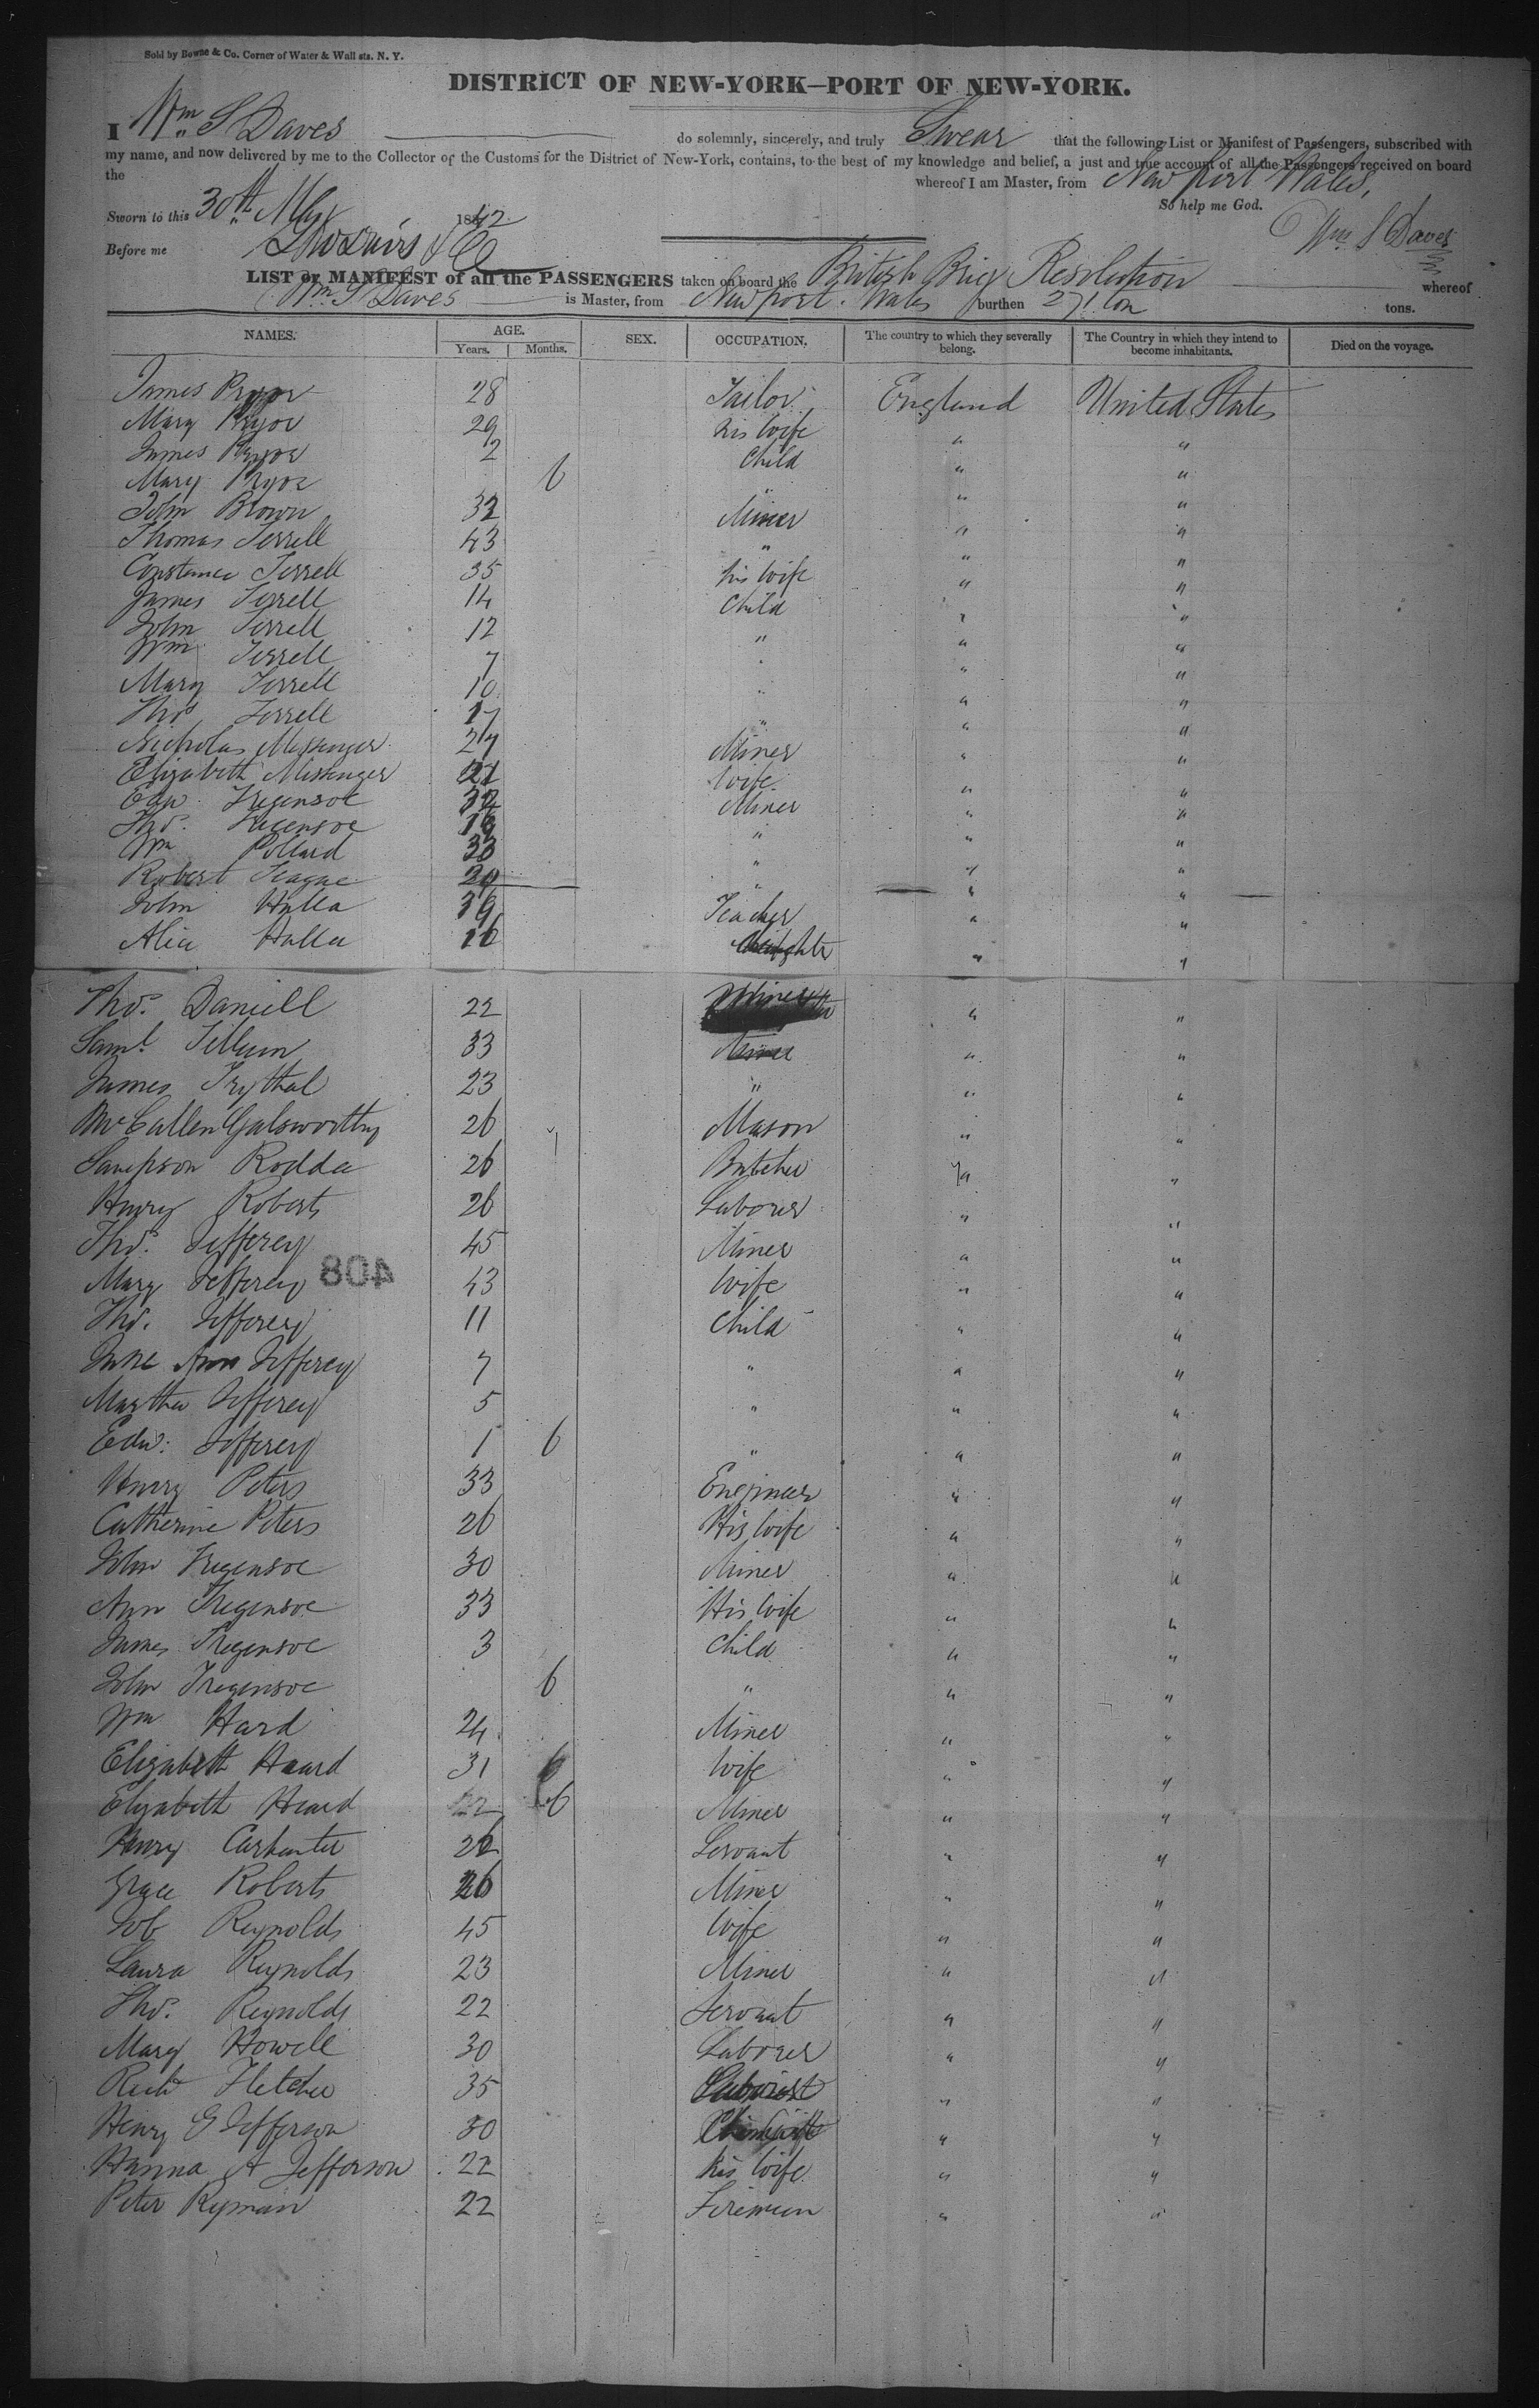 Sold by Bowne & Co. Corner of Water & Wall sts. N. Y.
DISTRICT OF NEW-YORK—PORT OF NEW-YORK.
I Wm S Daves do solemnly, sincerely, and truly Swear that the following List or Manifest of Passengers, subscribed with
my name, and now delivered by me to the Collector of the Customs for the District of New-York, contains, to the best of my knowledge and belief, a just and true account of all the Passengers received on board
the whereof I am Master, from New Port Wales,
Sworn to this 30th May 1842 So help me God.
Before me Wm S Daves
LIST or MANIFEST of all the PASSENGERS taken on board the British Brig Resolution whereof
Wm S Daves is Master, from Newport Wales burthen 271 ton tons.
NAMES. AGE. Years. Months. SEX. OCCUPATION. The country to which they severally belong. The Country in which they intend to become inhabitants. Died on the voyage.
James Pryor 28 Tailor England United States
Mary Pryor 29 his wife " "
James Pryor 2 Child " "
Mary Pryor 6 " " "
John Brown 32 Miner " "
Thomas Terrell 43 " " "
Constance Terrell 35 his wife " "
James Terrell 14 Child " "
John Terrell 12 " " "
Wm Terrell 7 " " "
Mary Terrell 10 " " "
Thos Terrell 17 " " "
Nicholas Messenger 27 Miner " "
Elizabeth Messenger 21 Wife " "
Edw. Tregensoe Miner " "
Thos. Tregensoe " " "
Wm Pollard " " "
Robert Teague " " "
John Halla Teacher " "
Alia Halla " "
Thos. Daniell 22 Miner " "
Saml. 33 Miner " "
James Trythal 23 " " "
McCallen Galsworthy 26 Mason " "
Sampson Rodda 26 Butcher " "
Henry Roberts 26 Laborer " "
Thos. Jefferey 45 Miner " "
Mary Jefferey 43 Wife " "
408
Thos. Jefferey 11 Child " "
Jane Ann Jefferey 7 " " "
Martha Jefferey 5 " " "
Edw: Jefferey 1 6 " " "
Henry Peters 33 Engineer " "
Catherine Peters 26 His wife " "
John Tregensoe 30 Miner " "
Ann Tregensoe 33 His wife " "
James Tregensoe 3 Child " "
John Tregensoe 6 " " "
Wm Hard 24 Miner " "
Elizabeth Haard 31 Wife " "
Elizabeth Heard 6 Miner " "
Henry Carpenter 26 Servant " "
Grace Roberts 26 Miner " "
Job Reynolds 45 Wife " "
Laura Reynolds 23 Miner " "
Thos. Reynolds 22 Servant " "
Mary Howell 30 Laborer " "
Richd Fletcher 35 " "
Henry G Jefferson 30 " "
Hanna A Jefferson 22 his wife " "
Peter Ryman 22 Fireman " "